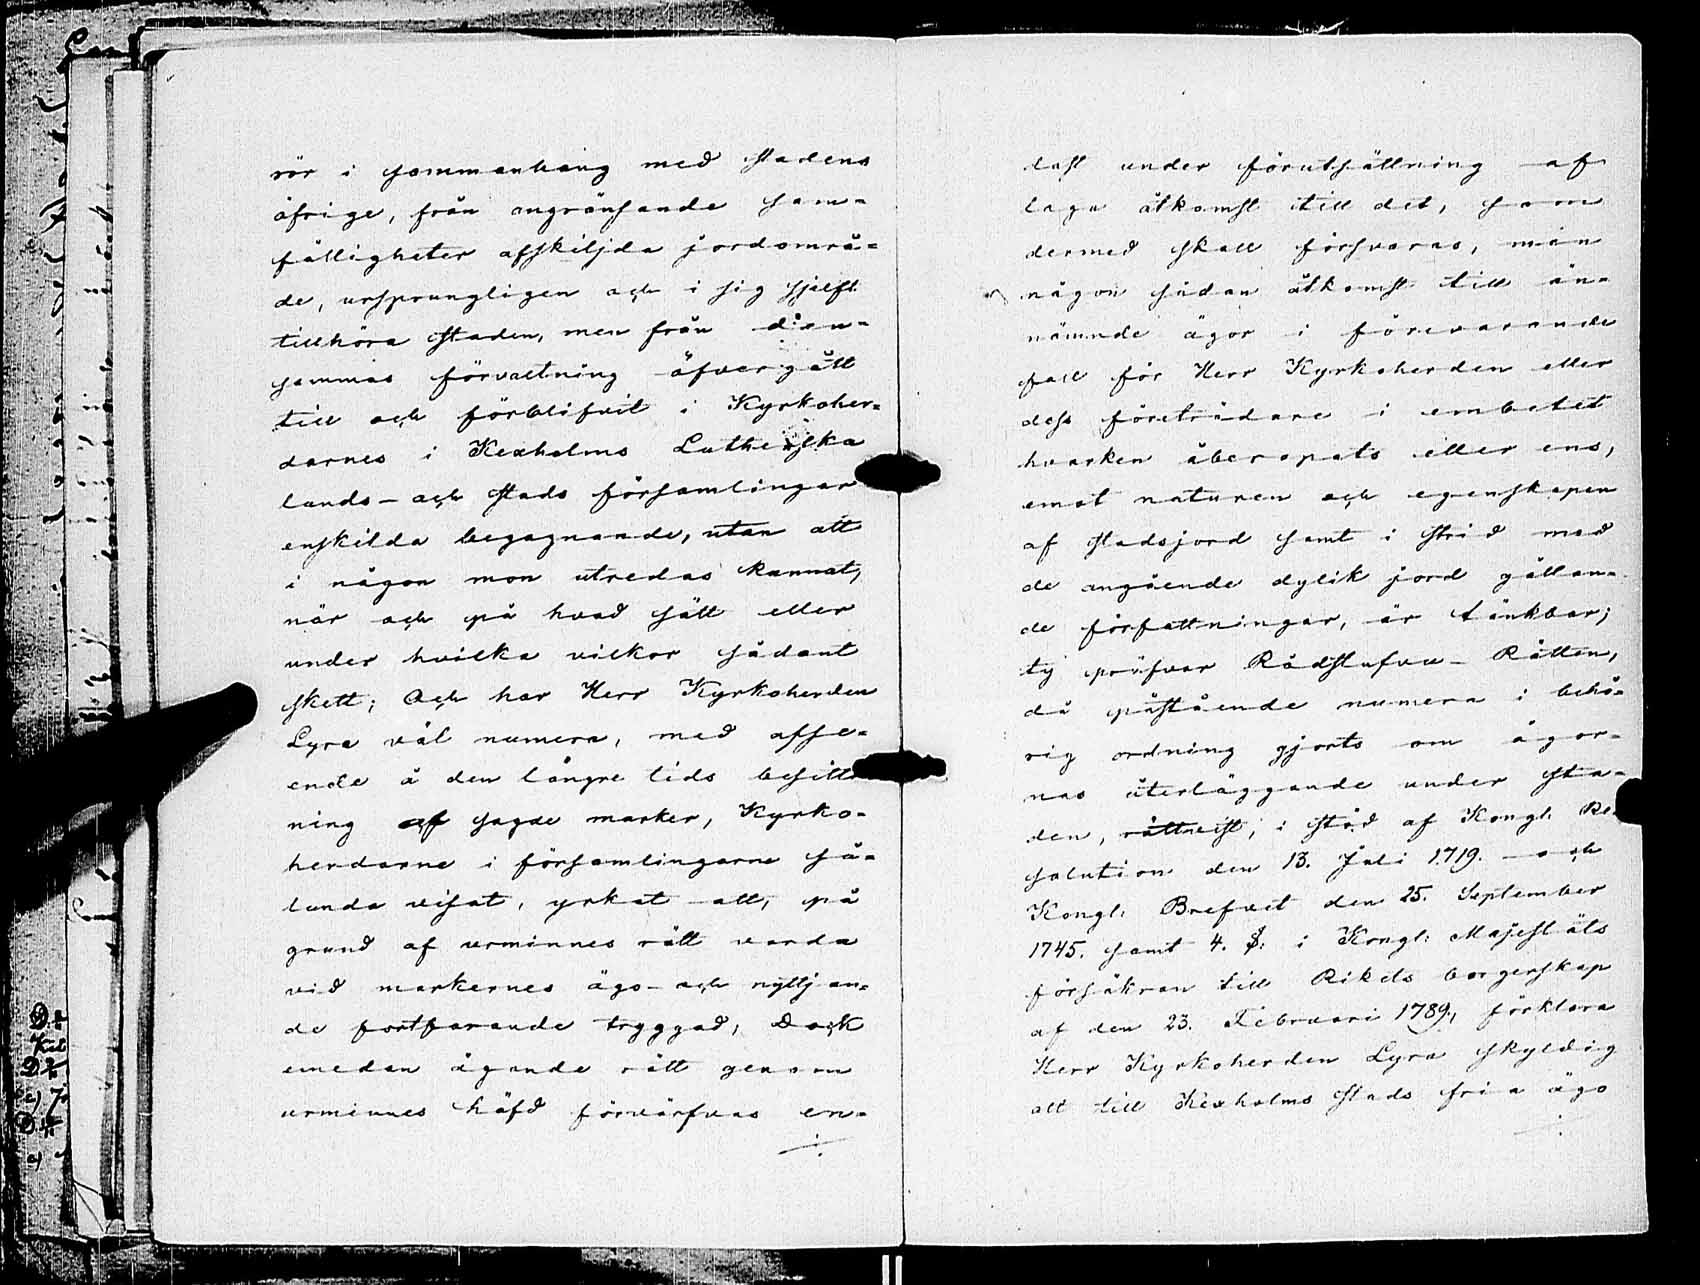 rör i sammanhang med stadens
öfrige, från angränsande sam-
fälligheter afskiljda jordområ-
de, ursprungligen och i sig sjelft
tillhöra staden, men från den-
sammas förvaltning öfvergått
till och förblifvit i Kyrkoher-
darnes i Kexholms Lutherska
lands- och stads församlingar
enskilda begagnande, utan att
i någon mon utredas kunnat,
när och på hvad sätt eller
under hvilka vilkor sådant
skett; Och har Herr Kyrkoherden
Lyra väl numera, med afse-
ende å den längre tids besitt
ning af sagde marker, Kyrko-
herdarne i församlingarne så-
lunda visat, yrkat att, på
grund af urminnes rätt varda
vid markernes ägo- och nyttjan-
de fortfarande tryggad, Dock
emedan ägande rätt genom
urminnes häfd förvärfvas en-
dast under förutsättning af
laga åtkomst till det, som
dermed skall försvaras, men
någon sådan åtkomst till än-
nämnde ägor i förevarande
fall för Herr Kyrkoherden eller
dess företrädare i embetet
hvarken åberopats eller ens,
emot naturen och egenskapen
af stadsjord samt i strid med
de angående dylik jord gällan-
de författningar, är tänkbar;
ty pröfvar Rådstufvu-Rätten,
då påstående numera i behö-
rig ordning gjorts om ägor-
nas återläggande under sta-
den, rättvist, i stöd af Kongl. Re-
solution den 13. Juli 1719. och
Kongl. Brefvet den 25. September
1745. samt 4. §: i Kongl: Majestäts
försäkran till Rikets borgerskap
af den 23. Februari 1789., förklara
Herr Kyrkoherden Lyra skyldig
att till Kexholms stads fria ägo